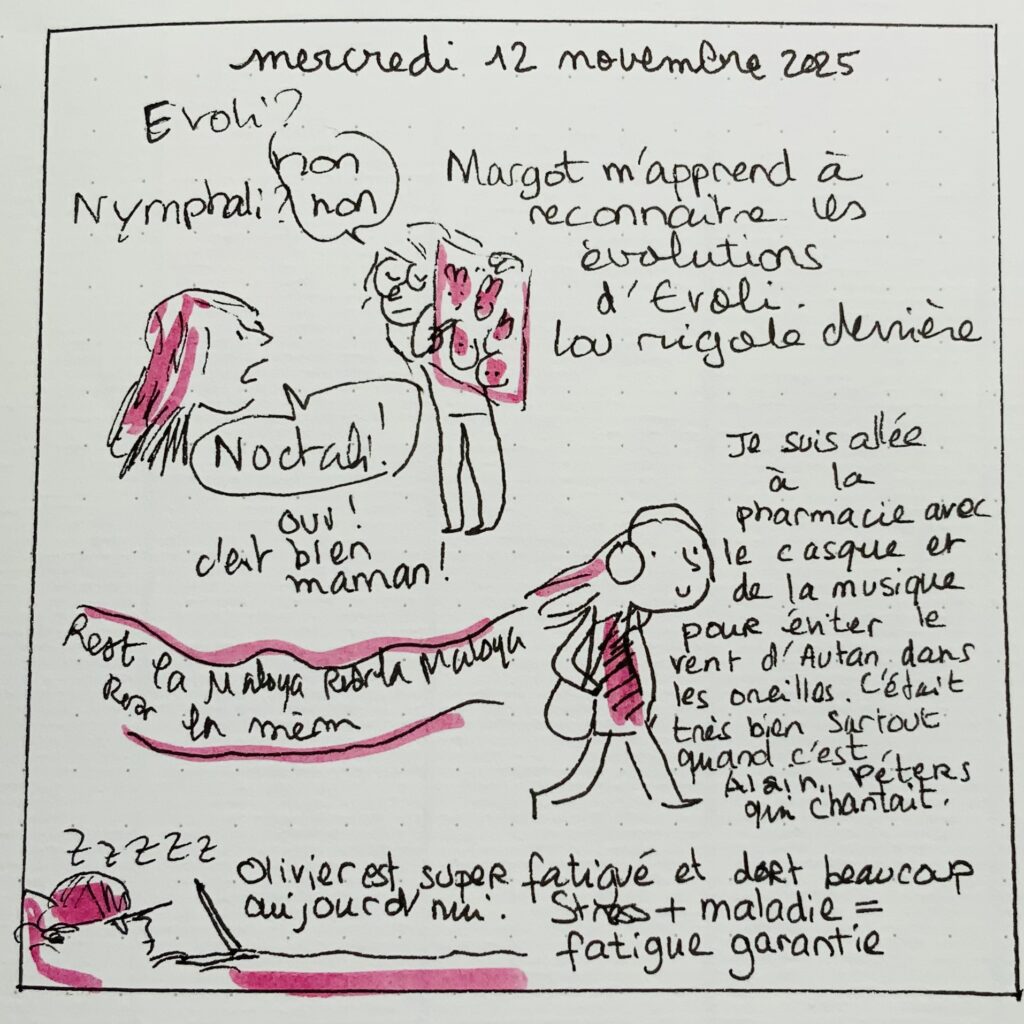 mercredi 12 novembre 2025
Evoli?
non
Nymphali?
non
Margot m'apprend à
reconnaitre les
évolutions
d'Evoli.
Lou rigole derrière
Noctali!
oui!
c'est bien
maman!
Je suis allée
à la
pharmacie avec
le casque et
de la musique
pour éviter le
vent d'Autan dans
les oreilles. C'était
très bien surtout
quand c'est
Alain Péters
qui chantait.
Rest la Maloya Rest la Maloya
Rest la mèm
Zzzzz
Olivier est super fatigué et dort beaucoup
aujourd'hui. Stress + maladie =
fatigue garantie